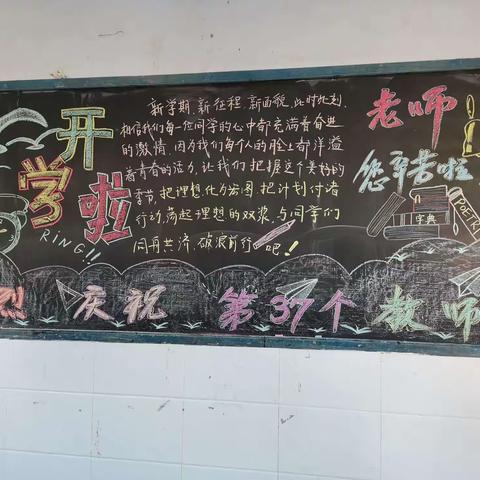 开学啦
RING!!
新学期,新征程,新面貌,此时此刻,
相信我们每一位同学的心中都充满着奋进
的激情,因为我们每个人的脸上都洋溢
着青春的活力,让我们把握这个美好的
季节,把理想化为宏图,把计划付诸
行动,荡起理想的双桨,与同学们
同舟共济,破浪前行吧!
老师
您辛苦啦
字典
POETRY
烈 庆祝 第37个教师